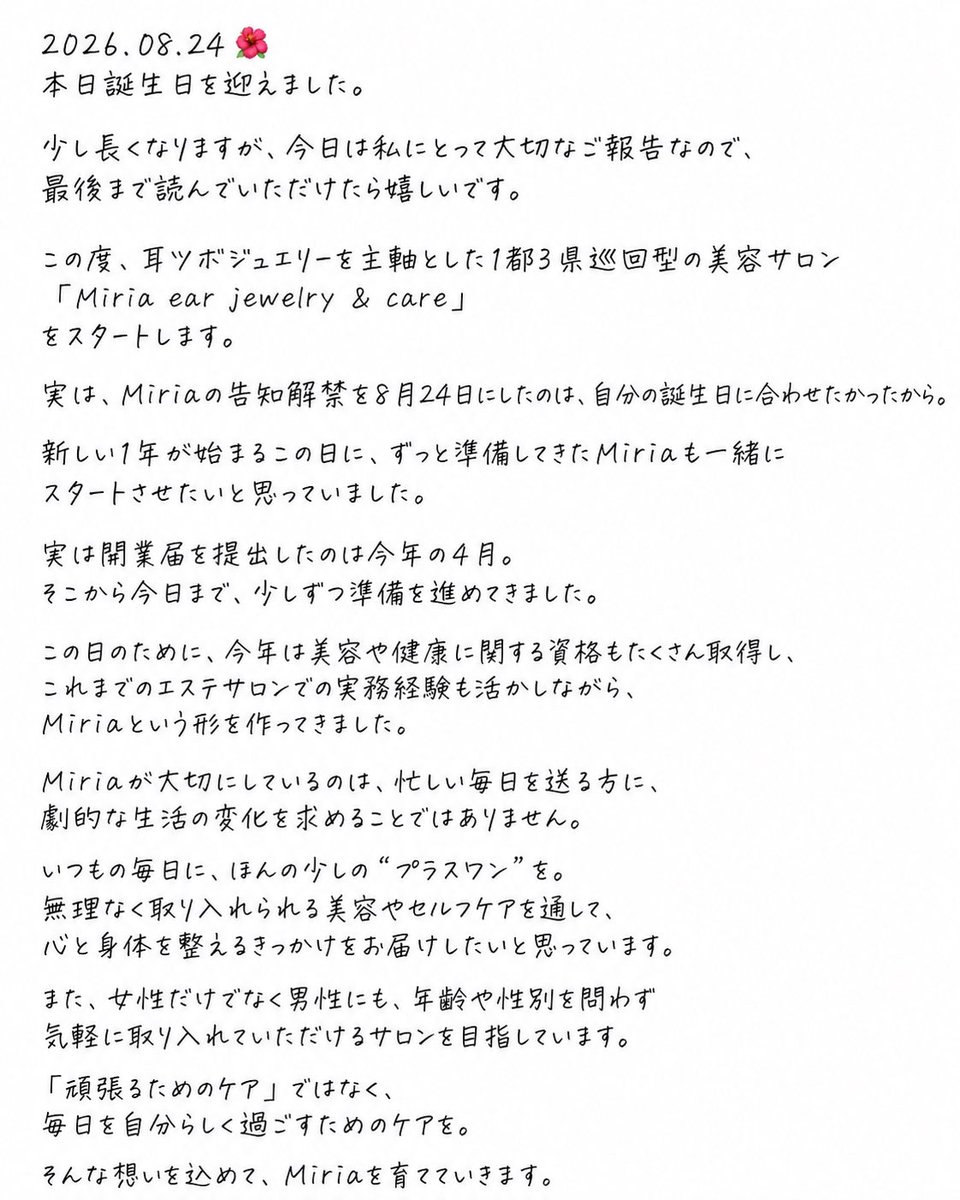 2026.08.24🌺
本日誕生日を迎えました。
少し長くなりますが、今日は私にとって大切なご報告なので、
最後まで読んでいただけたら嬉しいです。
この度、耳ツボジュエリーを主軸とした1都3県巡回型の美容サロン
「Miria ear jewelry & care」
をスタートします。
実は、Miriaの告知解禁を8月24日にしたのは、自分の誕生日に合わせたかったから。
新しい1年が始まるこの日に、ずっと準備してきたMiriaも一緒に
スタートさせたいと思っていました。
実は開業届を提出したのは今年の4月。
そこから今日まで、少しずつ準備を進めてきました。
この日のために、今年は美容や健康に関する資格もたくさん取得し、
これまでのエステサロンでの実務経験も活かしながら、
Miriaという形を作ってきました。
Miriaが大切にしているのは、忙しい毎日を送る方に、
劇的な生活の変化を求めることではありません。
いつもの毎日に、ほんの少しの“プラスワン”を。
無理なく取り入れられる美容やセルフケアを通して、
心と身体を整えるきっかけをお届けしたいと思っています。
また、女性だけでなく男性にも、年齢や性別を問わず
気軽に取り入れていただけるサロンを目指しています。
「頑張るためのケア」ではなく、
毎日を自分らしく過ごすためのケアを。
そんな想いを込めて、Miriaを育てていきます。